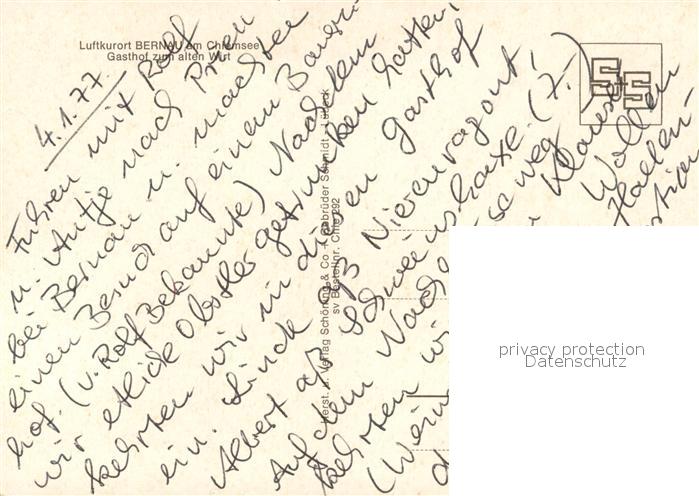 Luftkurort BERNAU am Chiemsee
Gasthof zum alten Wirt
4.1.77.
Fuhren mit Rolf
u. Antje nach Prien
bei Bernau u. machten
einen Besuch auf einem Bauern-
hof. (v. Rolf Bekannte) Nachdem
wir etliche Obstler getrunken hatten
kehrten wir in diesen Gasthof
ein. Linde aß Nierenragout
Albert aß Schweinshaxe. (7.-)
Auf dem
kehrten
(Wein
Klause
Wollen
Hallen-
S+S
Herst. u. Verlag Schöning & Co + Gebrüder Schmidt · Lübeck
sv Bestellnr. Chie 292
privacy protection
Datenschutz